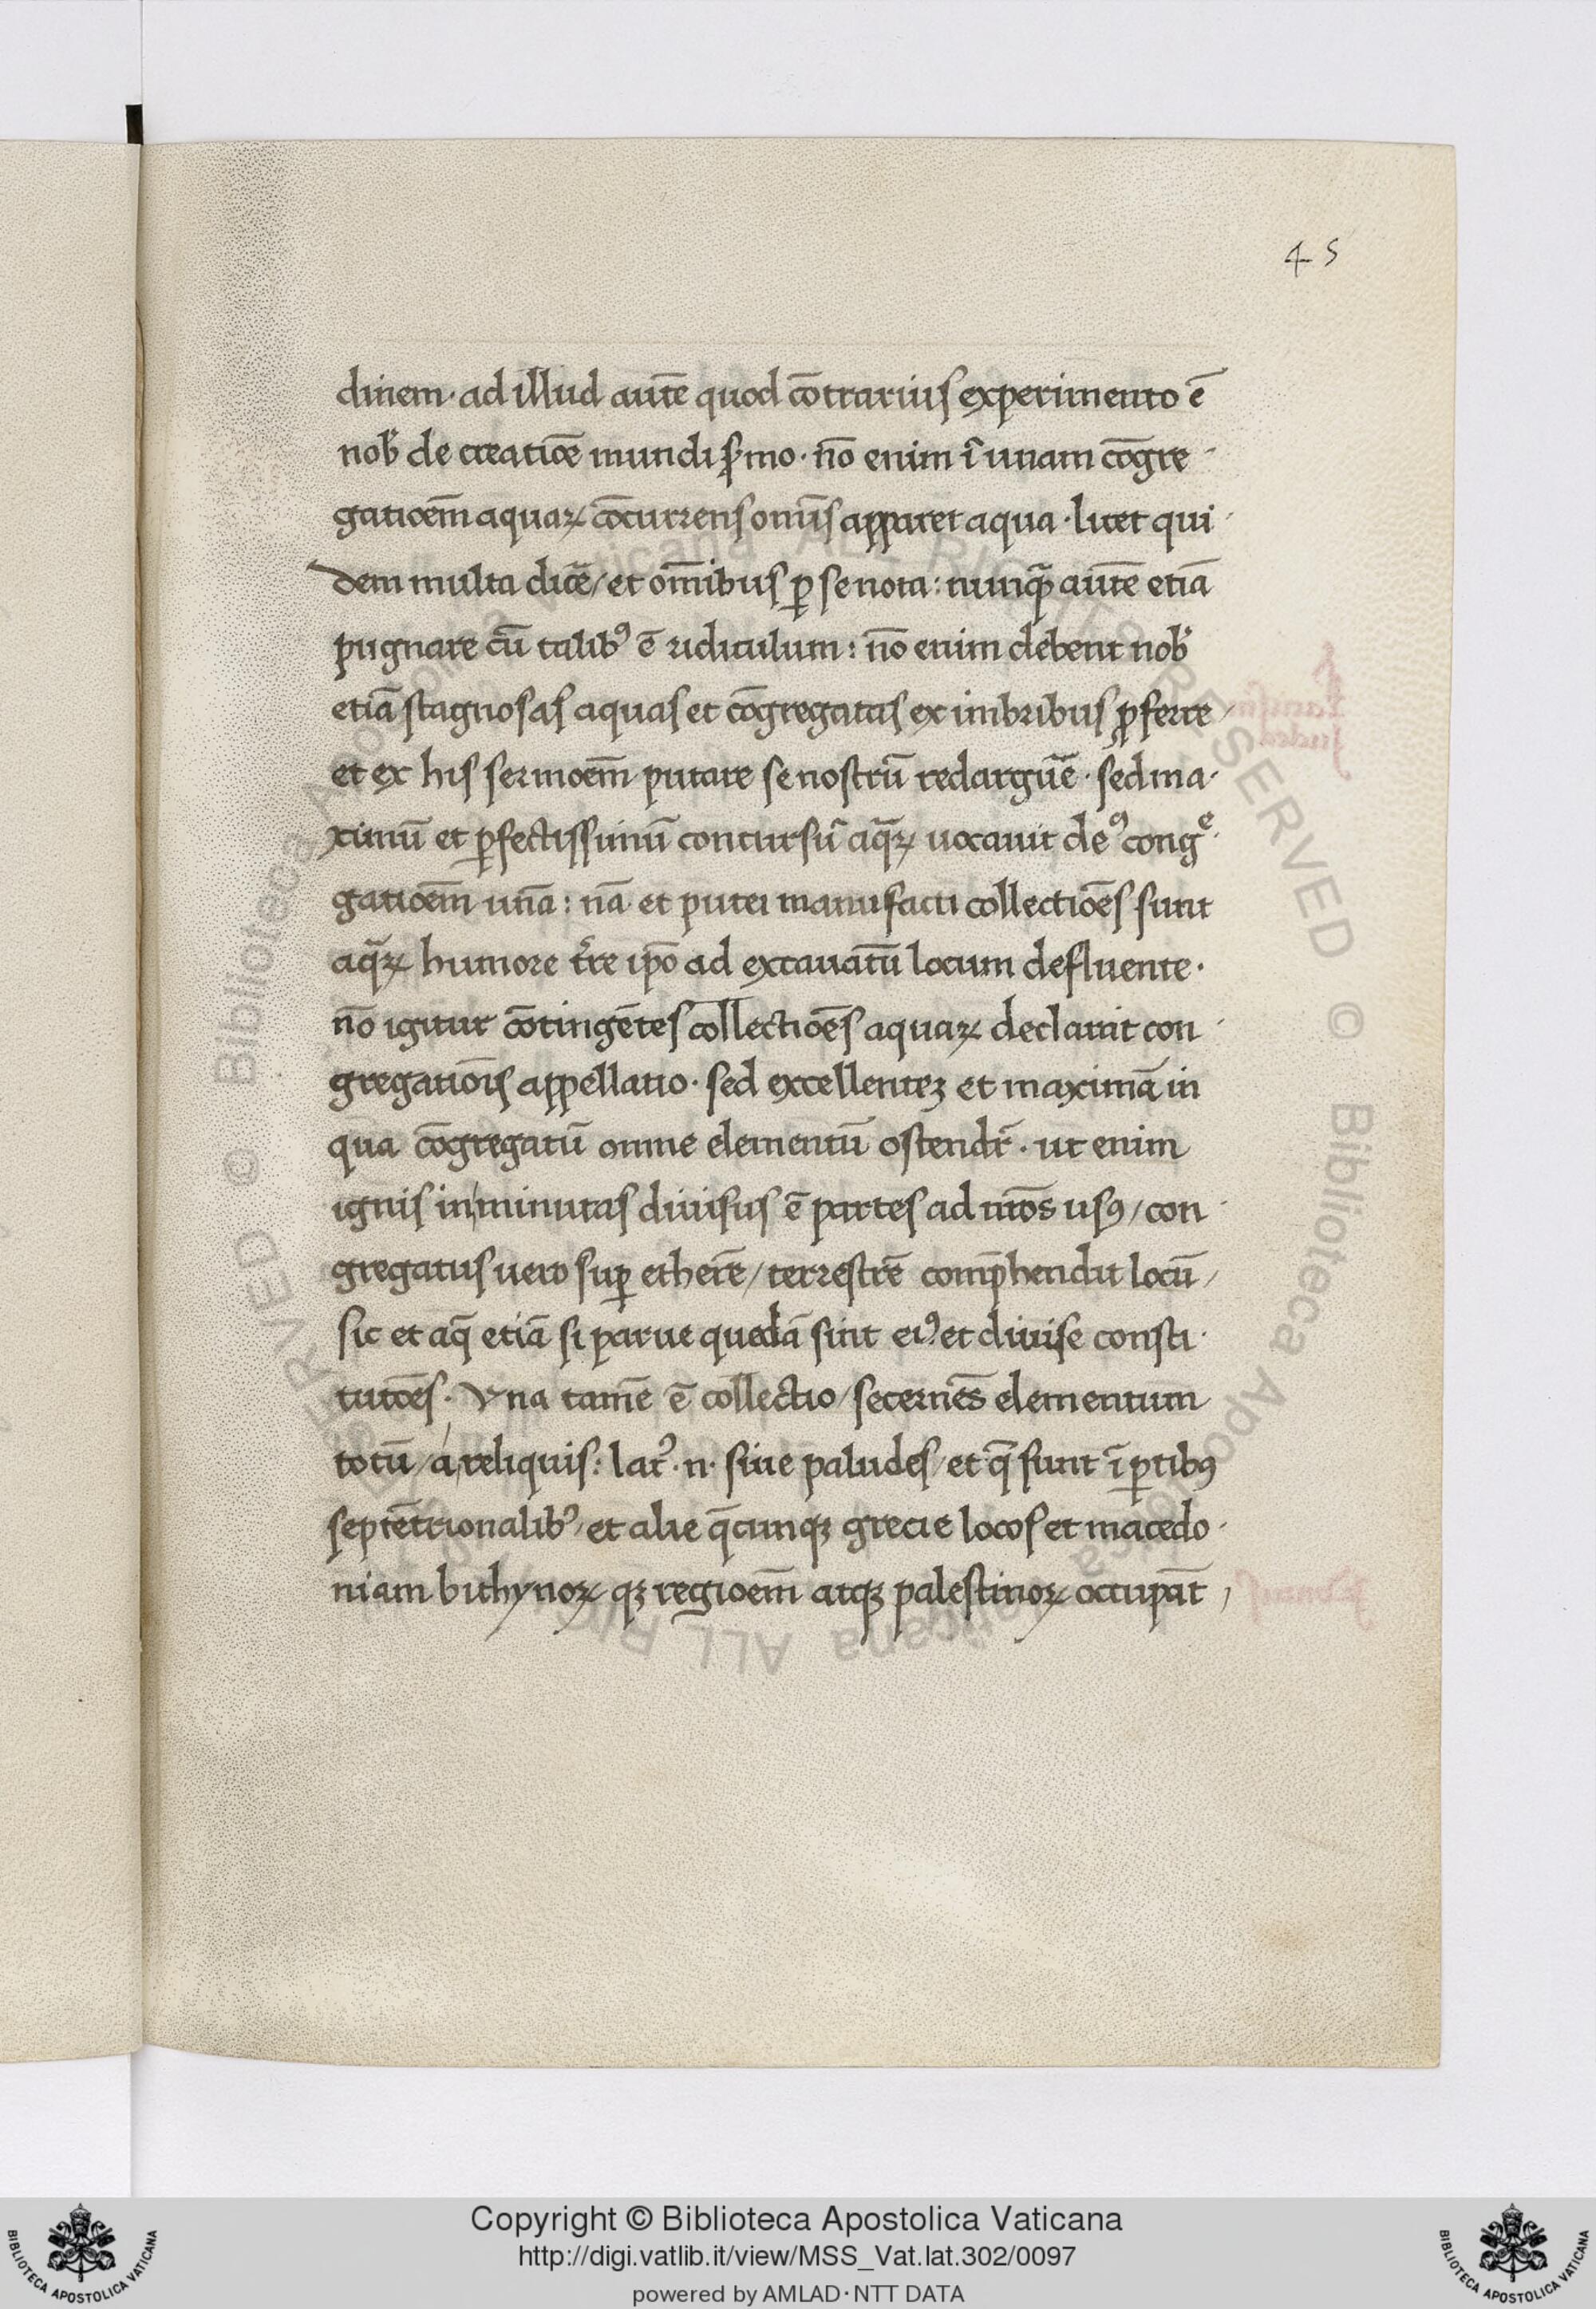 45
dinem · ad illud autē quod cōtrarius experimento ē
nob̾ de creatiōe mundi s̾mo · nō enim ī unam cōgre
gatioēm aquaꝝ cōcurrens om̄is apparet aqua · licet qui
dem multa dicē / et om̄ibus ꝑ se nota : nunqͣ̄ autē etiā
pugnare cū talibꝰ ē ridiculum : nō enim debent nob̾
etiā stagnosas aquas et cōgregatas ex imbribus ꝓferre /
et ex his sermoēm putare se nostrū redarguē̄ · sed ma ·
ximū et ꝑfectissimū concursū aqͣꝝ uocauit deꝰ congͤ ·
gatioēm unā : nā et putei manufacti collectiōes sunt
aqͣꝝ humore t̾re ip̄o ad excauatū locum defluente ·
nō igitur cōtingētes collectiōes aquaꝝ declarat con
gregatiōis appellatio · sed excellenteꝫ et maximā in
qua cōgregatū omne elementū ostendr̄ · ut enim
ignis in minutas diuisus ē partes ad nr̄os usꝰ / con
gregatus uero suꝑ etherē / terrestrē comp̄hendit locū /
sic et aq̄ etiā si parue quedā sint eiꝰ et diuise consti ·
tutōes · Vna tamē ē collectio / secernēs elementum
totū / a reliquis : lacꝰ · n · siue paludes / et q̄ sunt ī ꝑtibꝰ
septētrionalibꝰ / et alie q̄cunqꝫ grecie locos et macedo ·
niam bithynoꝝ qꝫ regioēm atqꝫ palestinoꝝ occupāt ,
© Biblioteca Apostolica Vaticana ALL RIGHTS RESERVED
© Biblioteca Apostolica Vaticana ALL RIGHTS RESERVED
Copyright © Biblioteca Apostolica Vaticana
http://digi.vatlib.it/view/MSS_Vat.lat.302/0097
powered by AMLAD · NTT DATA
BIBLIOTECA APOSTOLICA VATICANA
BIBLIOTECA APOSTOLICA VATICANA